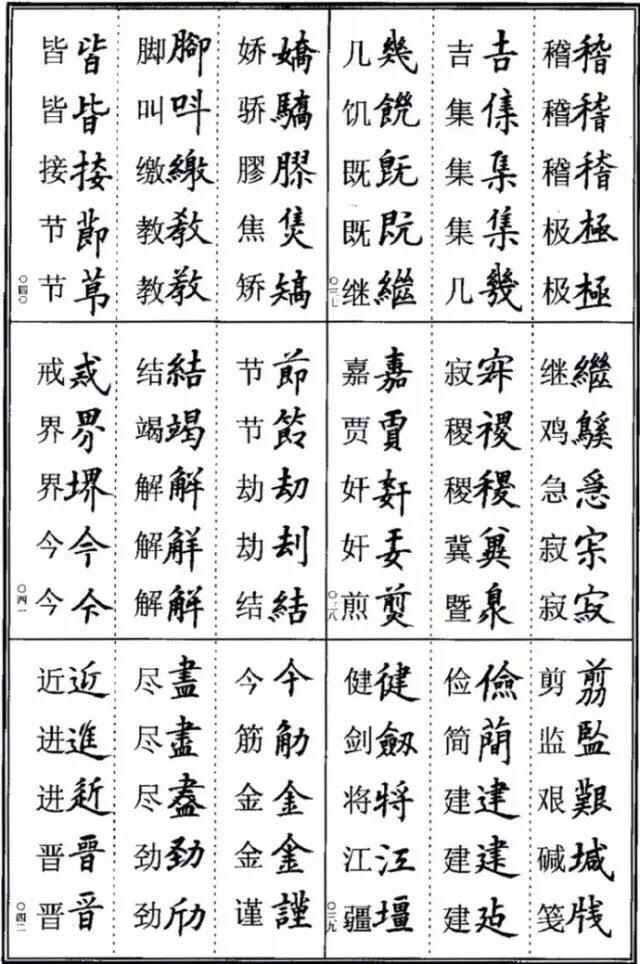 稽稽
稽稽
稽稽
极極
极極
吉吉
集㑫
集集
集集
几幾
几幾
饥饑
既旣
既既
继繼
〇三七
继繼
鸡鷄
急急
寂宋
寂寂
寂
稷稷
稷稷
冀兾
暨臮
嘉嘉
贾賈
奸奸
奸
煎煎
〇三八
剪剪
监監
艰艱
碱堿
笺牋
俭儉
简蕳
建建
建建
建
健健
剑劒
将将
江江
疆壃
〇三九
娇嬌
骄驕
膠膠
焦焦
矫矯
脚腳
叫呌
缴繳
教教
教教
皆皆
皆皆
接接
节節
节莭
〇四〇
节節
节節
劫劫
劫刦
结結
结結
竭竭
解解
解觧
解解
戒戒
界界
界堺
今今
今今
〇四一
今今
筋筋
金金
金金
谨謹
尽盡
尽盡
尽盡
劲劲
劲
近近
进進
进
晋晉
晋晋
〇四二